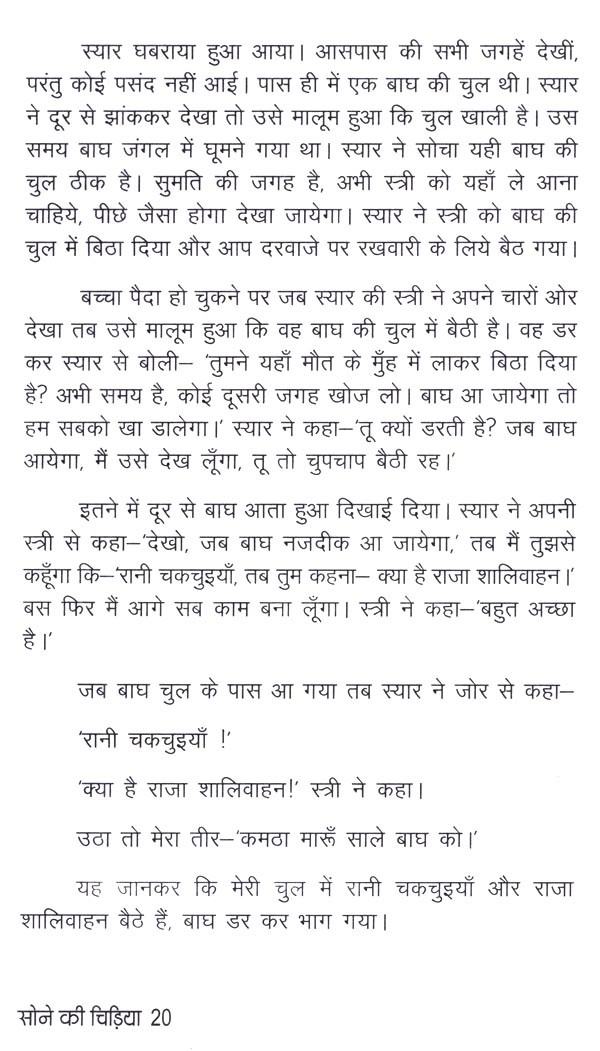 स्यार घबराया हुआ आया। आसपास की सभी जगहें देखीं,
परंतु कोई पसंद नहीं आई। पास ही में एक बाघ की चुल थी। स्यार
ने दूर से झांककर देखा तो उसे मालूम हुआ कि चुल खाली है। उस
समय बाघ जंगल में घूमने गया था। स्यार ने सोचा यही बाघ की
चुल ठीक है। सुमति की जगह है, अभी स्त्री को यहाँ ले आना
चाहिये, पीछे जैसा होगा देखा जायेगा। स्यार ने स्त्री को बाघ की
चुल में बिठा दिया और आप दरवाजे पर रखवारी के लिये बैठ गया।
बच्चा पैदा हो चुकने पर जब स्यार की स्त्री ने अपने चारों ओर
देखा तब उसे मालूम हुआ कि वह बाघ की चुल में बैठी है। वह डर
कर स्यार से बोली– 'तुमने यहाँ मौत के मुँह में लाकर बिठा दिया
है? अभी समय है, कोई दूसरी जगह खोज लो। बाघ आ जायेगा तो
हम सबको खा डालेगा।' स्यार ने कहा–'तू क्यों डरती है? जब बाघ
आयेगा, मैं उसे देख लूँगा, तू तो चुपचाप बैठी रह।'
इतने में दूर से बाघ आता हुआ दिखाई दिया। स्यार ने अपनी
स्त्री से कहा–'देखो, जब बाघ नजदीक आ जायेगा,' तब मैं तुझसे
कहूँगा कि–'रानी चकचुइयाँ, तब तुम कहना– क्या है राजा शालिवाहन।'
बस फिर मैं आगे सब काम बना लूँगा। स्त्री ने कहा–'बहुत अच्छा
है।'
जब बाघ चुल के पास आ गया तब स्यार ने जोर से कहा–
'रानी चकचुइयाँ !'
'क्या है राजा शालिवाहन!' स्त्री ने कहा।
उठा तो मेरा तीर–'कमठा मारूँ साले बाघ को।'
यह जानकर कि मेरी चुल में रानी चकचुइयाँ और राजा
शालिवाहन बैठे हैं, बाघ डर कर भाग गया।
सोने की चिड़िया 20